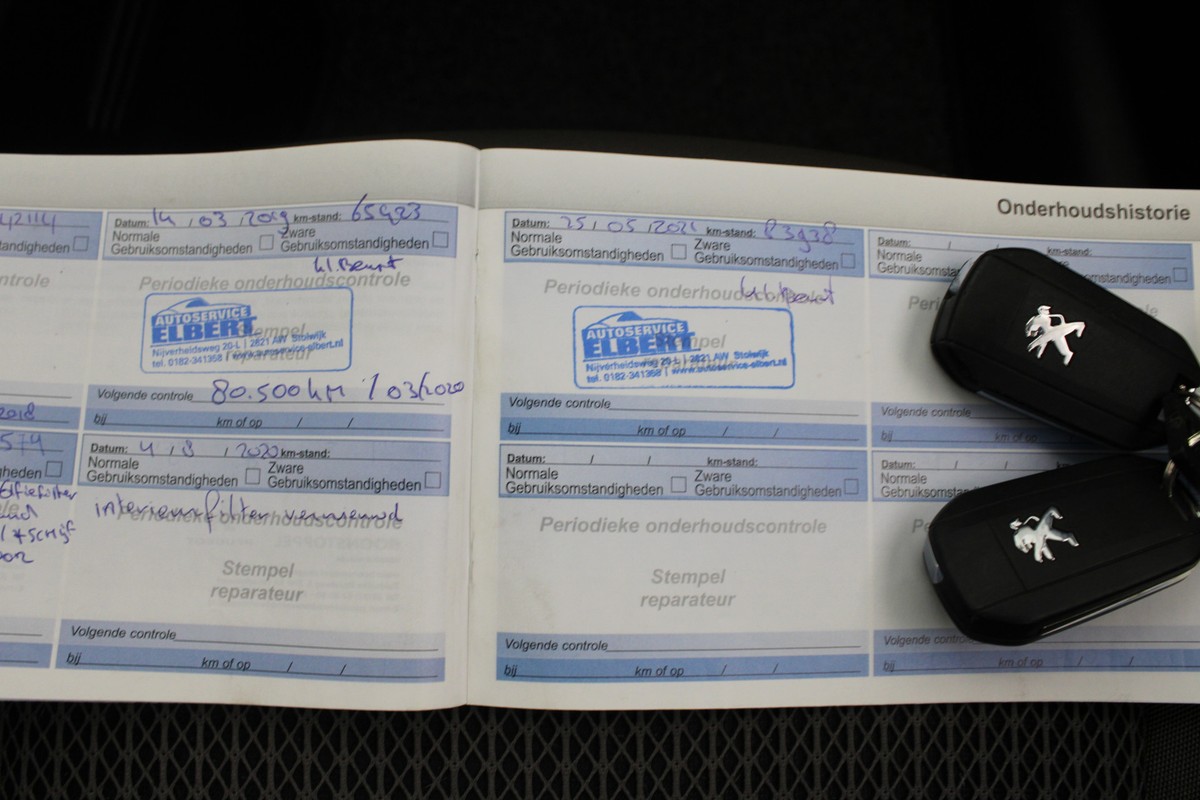 Onderhoudshistorie
42114
standigheden
ntrole
2018
574
gheden
Datum: 14 / 03 / 2019 km-stand: 65923
Normale Zware
Gebruiksomstandigheden Gebruiksomstandigheden
kl Beurt
Periodieke onderhoudscontrole
AUTOSERVICE
ELBERT
Stempel
reparateur
Nijverheidsweg 20-L | 2821 AW Stolwijk
tel. 0182-341358 | www.autoservice-elbert.nl
Volgende controle 80.500 km / 03/2020
bij km of op / /
Datum: 4 / 8 / 2020 km-stand:
Normale Zware
Gebruiksomstandigheden Gebruiksomstandigheden
interieurfilter vernieuwd
Periodieke onderhoudscontrole
Stempel
reparateur
Volgende controle
bij km of op / /
Datum: 25 / 05 / 2021 km-stand: 83938
Normale Zware
Gebruiksomstandigheden Gebruiksomstandigheden
Periodieke onderhoudscontrole
Beurt
AUTOSERVICE
ELBERT
Stempel
reparateur
Nijverheidsweg 20-L | 2821 AW Stolwijk
tel. 0182-341358 | www.autoservice-elbert.nl
Volgende controle
bij km of op / /
Datum: / / km-stand:
Normale Zware
Gebruiksomstandigheden Gebruiksomstandigheden
Periodieke onderhoudscontrole
Stempel
reparateur
Volgende controle
bij km of op / /
Datum: / / km-stand:
Normale
Gebruiksomsta digheden
Volgende controle
bij km of op
Datum: / / km-stand:
Normale
Gebruiksomstan
Volgende controle
bij km of op / /